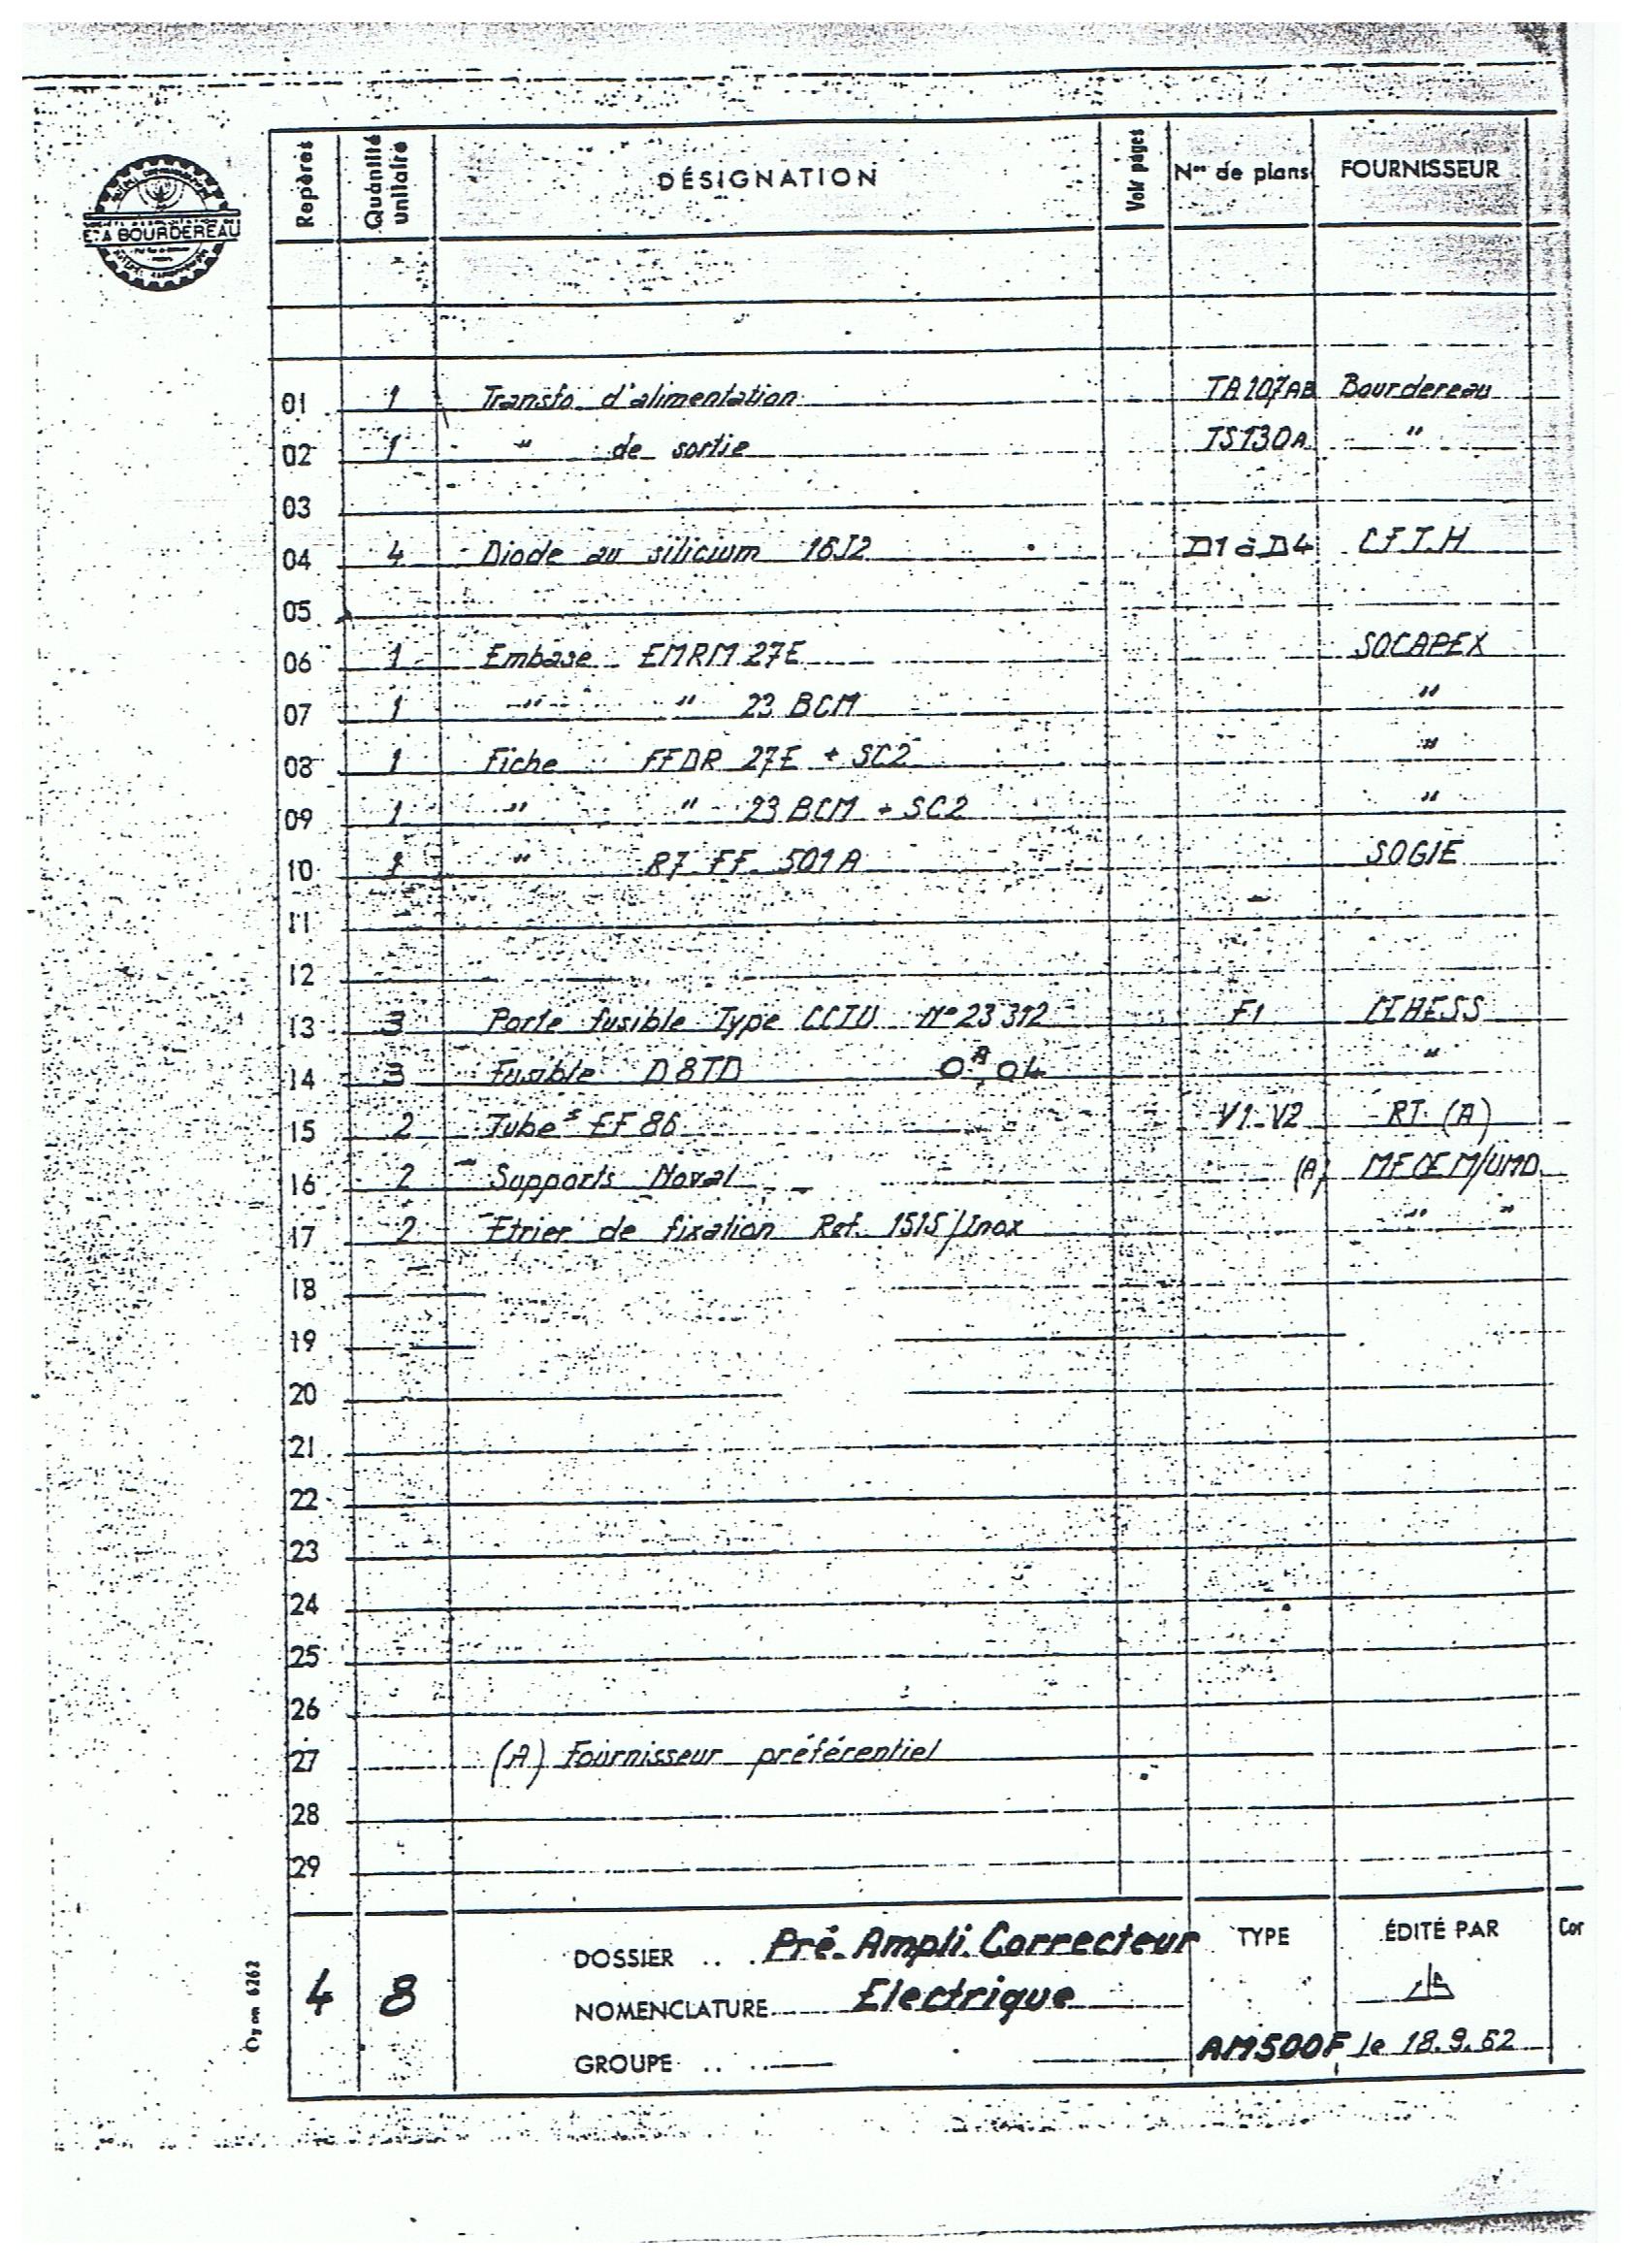 Ets A BOURDEREAU
Repères Quantité unitaire DÉSIGNATION Voir pages Nos de plans FOURNISSEUR
01 1 Transfo d'alimentation TA107AB Bourdereau
02 1 " de sortie TS130A "
03
04 4 Diode au silicium 16J2 D1 à D4 C.F.T.H
05
06 1 Embase EMRM 27E SOCAPEX
07 1 " " 23 BCM "
08 1 Fiche FFDR 27E + SC2 "
09 1 " " 23 BCM + SC2 "
10 1 " R7 FF 501A SOGIE
11
12
13 3 Porte fusible Type CCTU N° 23312 F1 CEHESS
14 3 Fusible D8TD 0A,04 "
15 2 Tubes EF86 V1-V2 RT (A)
16 2 Supports Noval (A) MFOEM/UMD
17 2 Etrier de fixation Ref. 1515/Inox " "
18
19
20
21
22
23
24
25
26
27 (A) Fournisseur préférentiel
28
29
4 8 DOSSIER .. Pré-Ampli. Correcteur TYPE ÉDITÉ PAR Cor
NOMENCLATURE Electrique
GROUPE .. AM500F le 18.9.62
6262